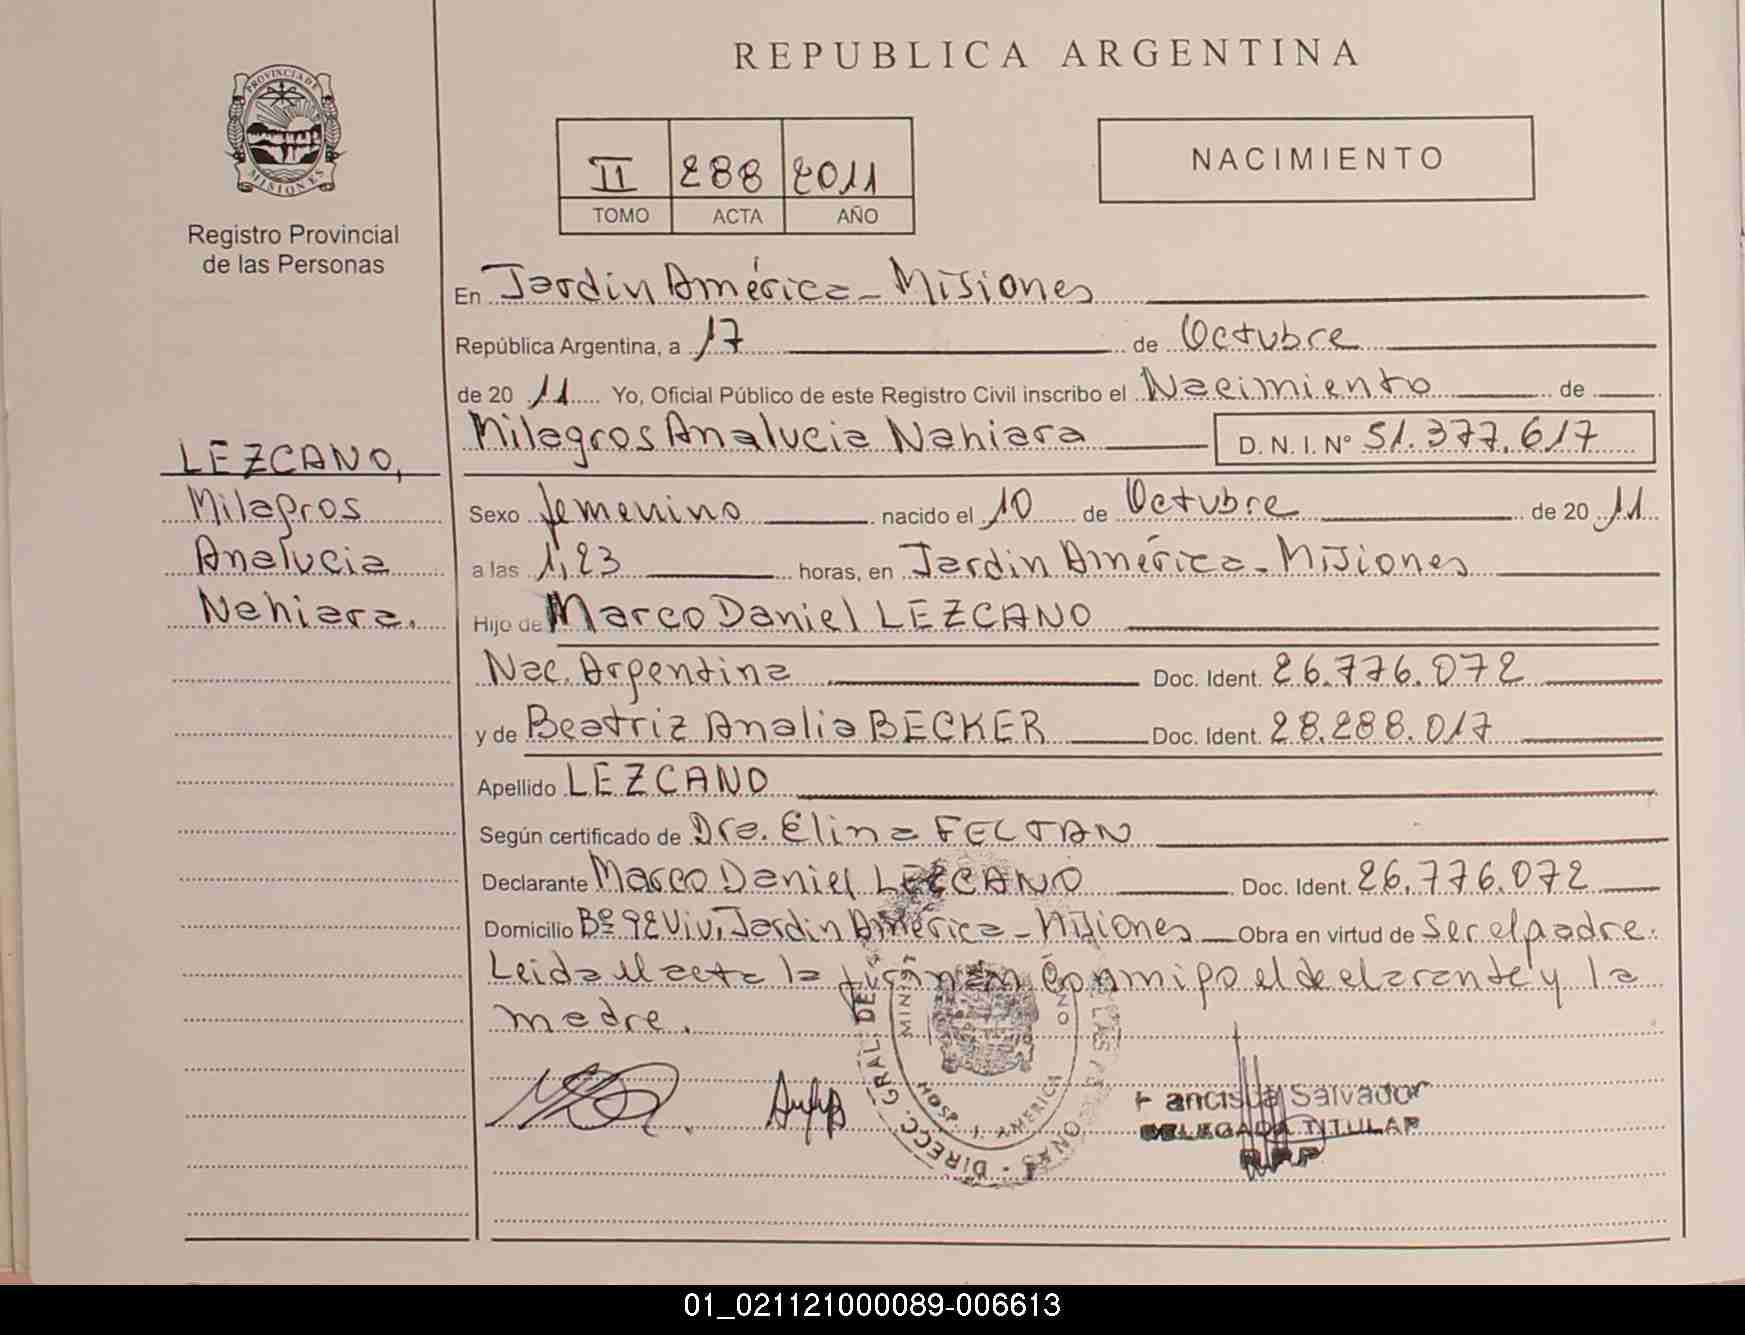 REPUBLICA ARGENTINA
PROVINCIA DE
MISIONES
Registro Provincial
de las Personas
II 288 2011
TOMO ACTA AÑO
NACIMIENTO
En Jardin América - Misiones
República Argentina, a 17 de Octubre
de 20 11 Yo, Oficial Público de este Registro Civil inscribo el Nacimiento de
Milagros Analucia Nahiara D. N. I. Nº 51.377.617
LEZCANO,
Milagros
Analucia
Nahiara.
Sexo femenino nacido el 10 de Octubre de 20 11
a las 1,23 horas, en Jardin América - Misiones
Hijo de Marco Daniel LEZCANO
Nac. Argentina Doc. Ident. 26.776.072
y de Beatriz Analia BECKER Doc. Ident. 28.288.017
Apellido LEZCANO
Según certificado de Dra. Elina FELTAN
Declarante Marco Daniel LEZCANO Doc. Ident. 26.776.072
Domicilio Bº 92 Viv. Jardin América - Misiones Obra en virtud de Ser el padre.
Leida el acta la firman conmigo el declarante y la
madre.
DIRECC. GRAL. DE LAS PERSONAS
HOSP. J. AMERICA
Francisca Salvador
DELEGADA TITULAR
R.P.P
01_021121000089-006613